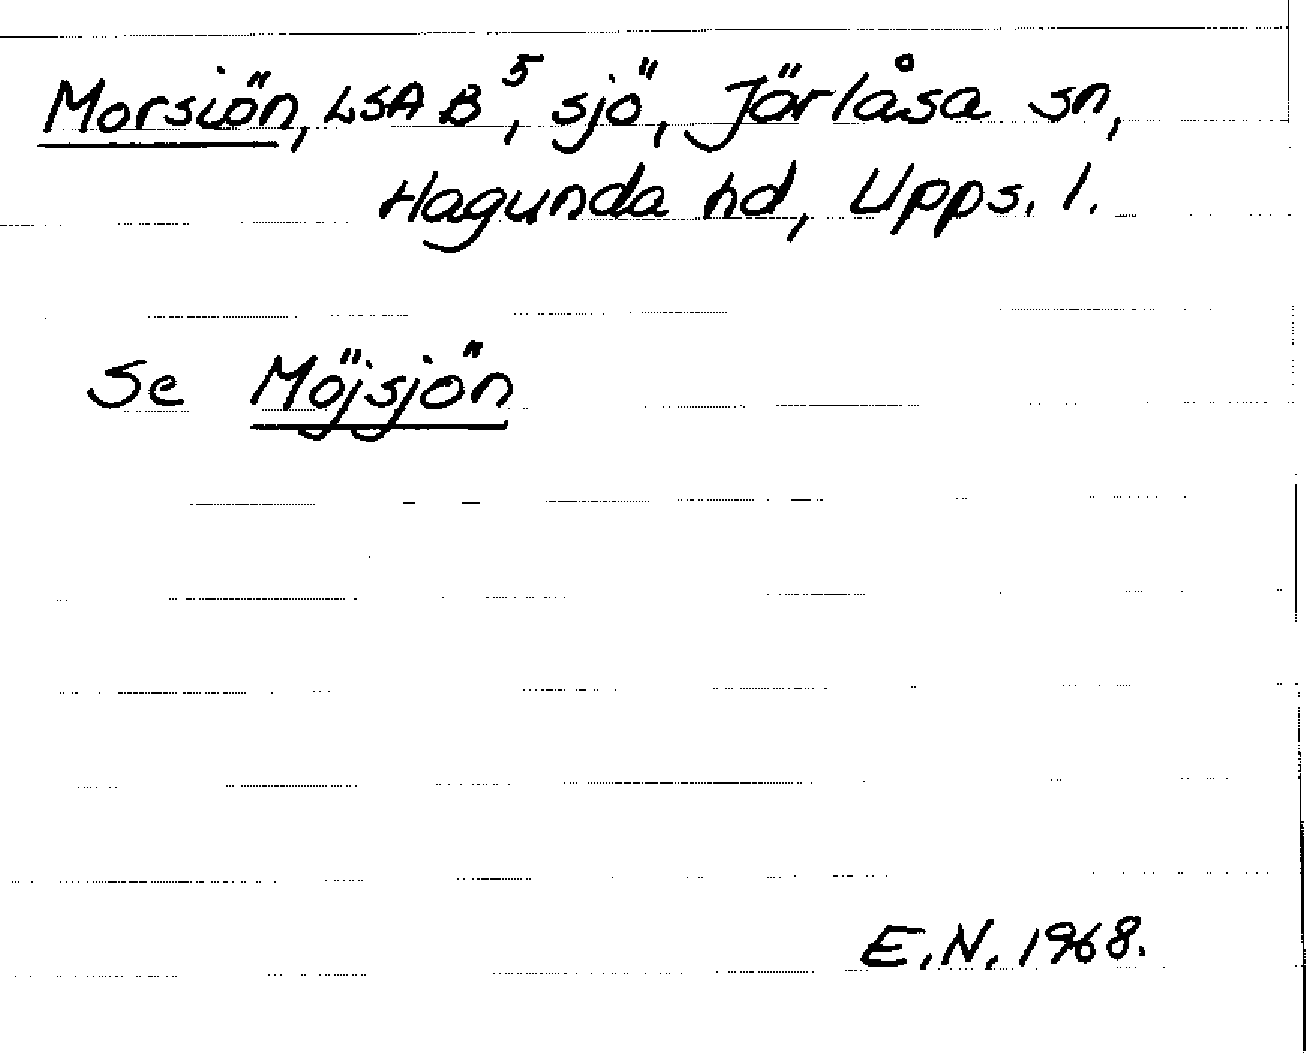 Morsiön, LSA B⁵, sjö, Järlåsa sn,
Hagunda hd, Upps. l.
Se Möjsjön
E.N. 1968.